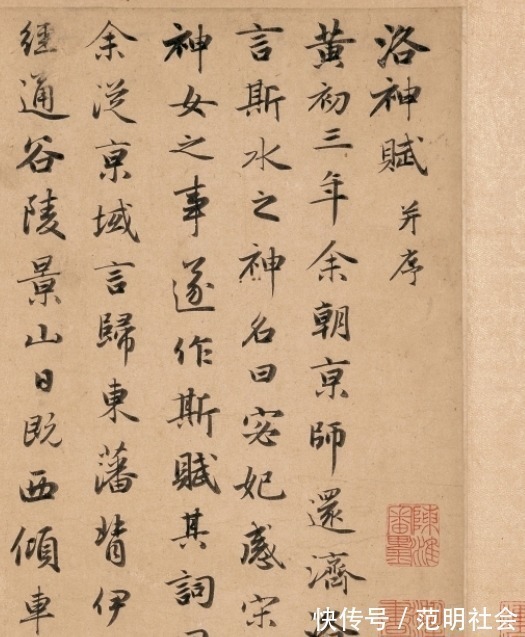 洛神賦 并序
黄初三年余朝京師還濟
言斯水之神名曰宓妃感宋
神女之事遂作斯賦其詞
余從京域言歸東藩背伊
經通谷陵景山日既西傾車
陳淮
快传号 / 范明社会